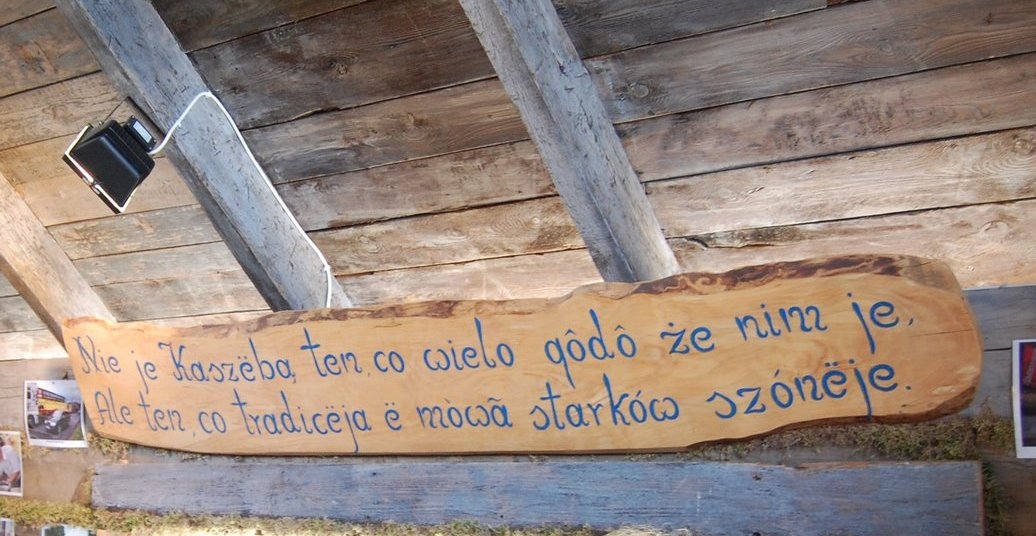 Nie je Kaszëbą, ten, co wielo gôdô że nim je,
Ale ten, co tradicëja ë mòwã starków szónëje.